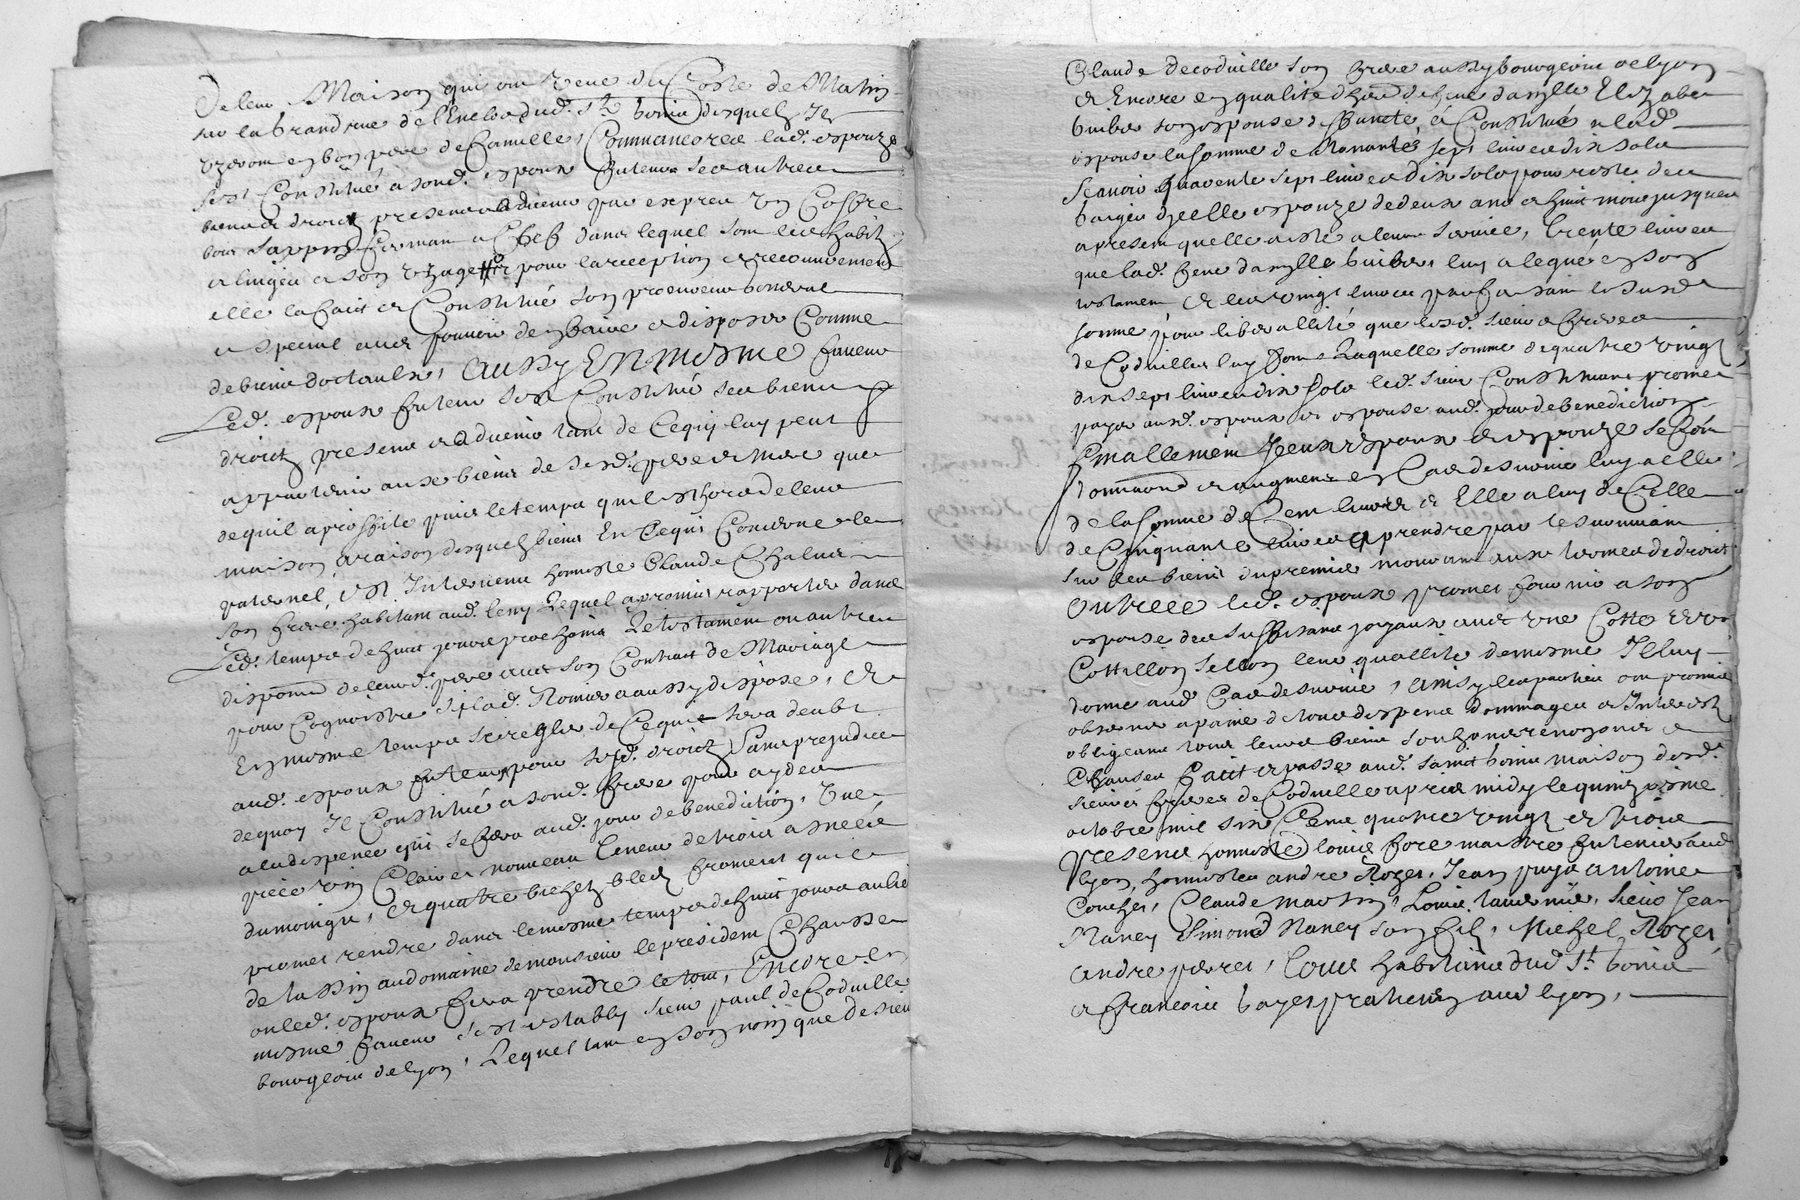 De leur Maison qui ont veue du Coste de Matin
sur la Grand rue de l'Encloz dud. St bonin desquelz Ilz
uzeront en bon pere de famille, Commancorea lad. espouze
sest Constitué a sond. espoux futeur ses autres
biens et droictz presens et advenir par exprea un Coffre
bois sappin fermant a Clef dans lequel sont les habitz
et linges a son uzage Et pour la reception et recouvrement
elle la faict et Constitué son procureur general
et special avec pouvoir den faire et disposer Comme
de biens doctaulx, Aussy EN Mesme faveur
Led. espoux futeur sest Constitué ses biens
droictz presens et advenir tant de Cequi luy peut
appartenir aux biens de sesd. pere et mere que
de quil a proffité puis le temps quil est hors de leur
maison, a raison desquelz biens En Cequi Concerne le
paternel, est Intervenu honneste Claude Chalus
son frere habitant aud. leny Lequel a promis rapporter dans
Led. temps de huit jours prochains Le testament ou autre
dispoon de leurd. pere avec son Contract de Mariage
pour Cognoistre si lad. Romier a aussy dispose, Et
En mesme temps se regler de Cequi sera deub
aud. espoux futeur pour sesd. droictz sans prejudice
dequoy Il Constitué a sond. frere pour aydea
a la despence qui se fera aud. jour de benediction, Une
piece vin Clairet nouveau teneur de trois asnées
du moings, Et quatre bichetz bled froment quil
promet rendre dans le mesme temps de huit jours au lieu
de tassin au domaine de monsieur le president Chausse
ou led. espoux fera prendre le tout, Encore En
mesme faveur s'est establly sieur paul de Codville
bourgeois de lyon, Lequel tant en son nom que de sieur
Claude de codville son frere aussy bourgeois de lyon
et Encore en qualité d'heritier de feue damylle Elizabet
buibea son espouse deffuncte a Constitué a lad.
espouse la somme de Nonante sept livres dix solz
Scavoir quarente sept livres dix solz pour reste des
gages dycelle espouze de deux ans et huit mois jusques
a present quelle a esté a leur service, trente livres
que lad. feue damylle buibea luy a legué en son
testament Et les vingt livres parfaisant la susd.
somme pour liberallité que lesd. sieurs freres
de Codville luy font, Laquelle somme de quatre vingt
dix sept livres dix solz led. sieur Constituant promet
payer ausd. espoux et espouse aud. jour de benediction
finallement Iceux espoux et espouze se font
donnaon et augment En Cas de survie luy a elle
de la somme de Cent livres et Elle a luy de Celle
de Cinquante livres a prendre par le survivant
sur les biens du premier mourant aux termes de droict
Outre ce led. espoux promet fournir a son
espouse des suffisans joyaux avec une Cotte et un
Cottillon sellon leur quallité de mesme Il luy
donne aud. Cas de survie, Ainsy les parties ont promis
observer a paine de tous despens dommages et Interestz
obligeans tous leurs biens soubzmis renonçant et
Clauses faict et passe aud. saint bonin maison desd.
sieurs freres de Codville apres midy le quinziesme
octobre mil six Cens quatre vingt et trois
presens honneste louis fore maistre futenier aud.
lyon, honnestes andre Rozet, Jean puya antoine
Couchet, Claude Martin, Louis tavernier, Sieur Jean
Naney Esimond Naney son fils, Michel Rozet,
andre perret, tous habitans dud. St. bonin
et francois bayet praticien aud. lyon,